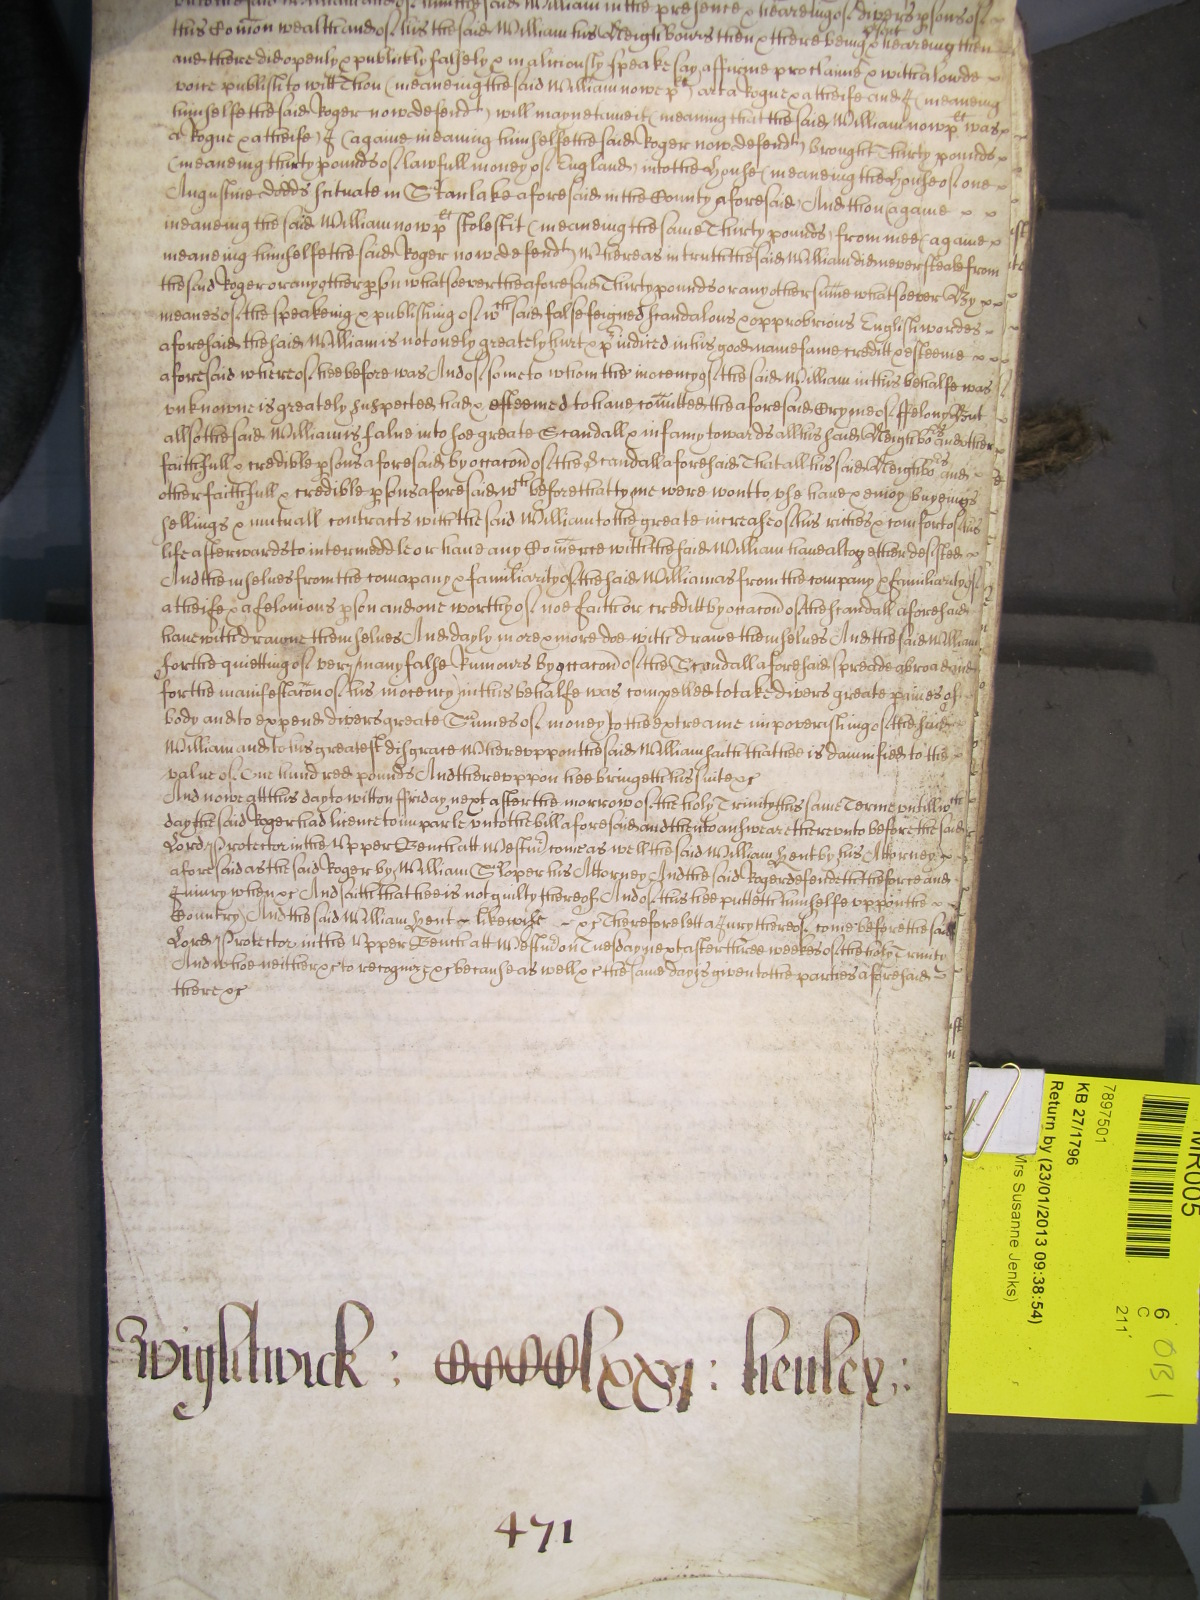 unto the said William and of him the said William in the presence & heareing of divers psons of
this Comon wealth and of his the said William his Neighbours then & there being psent & heareing then
and there did openly & publickly falsely & maliciously speake say affirme proclaime & with a lowde
voice publish to witt Thou (meaneing the said William nowe plt) art a Rogue & a theife and I (meaneing
himselfe the said Roger now defendt) will mayneteine it (meaning that the said William now plt was
a Rogue & a theife) I (againe meaning himselfe the said Roger now defendt) brought Thirty pounds
(meaneing thirty pounds of lawfull money of England) into the House (meaneing the House of one
Augustine Dodds scituate in Stanlake aforesaid in the County aforesaid) And thou (againe
meaneing the said William now plt) stolest it (meaneing the same Thirty pounds) from mee (againe
meaneing himselfe the said Roger now defendt) Whereas in truth the said William did never steale from
the said Roger or any other pson whatsoever the aforesaid Thirty pounds or any other sume whatsoever By
meanes of the speakeing & publishing of wch said false feigned scandalous & opprobrious English wordes
aforesaid the said William is not onely greately hurt & piudiced in his good name fame creditt & esteeme
aforesaid whereof hee before was And of some to whom the inocency of the said William in this behalfe was
unknowne is greately suspected had & esteemed to have comitted the aforesaid Cryme of ffelony But
allso the said William is falne into soe great Scandall & infamy towards all his said Neighbors and other
faithfull & credible psons aforesaid by occacon of the Scandall aforesaid That all his said Neighbors and
other faithfull & credible psons aforesaid wch before that tyme were wont to use have & enioy buyeings
sellings & mutuall contracts with the said William to the greate increase of his riches & comfort of his
life afterwards to intermeddle or have any Comerce with the said William have altogether desisted
And themselves from the comapany & familiarity of the said William as from the company & familiarity of
a theife & a felonious pson and one worthy of noe faith or creditt by occacon of the scandall aforesaid
have withdrawne themselves And dayly more & more doe withdrawe themselves And the said William
for the quietting of very many false Rumours by occacon of the Scandall aforesaid spreade abroad and
for the manifestacon of his inocency in this behalfe was compelled to take divers great paines of
body and to expend divers greate Sumes of money to the extreame impoverishing of the said
William and to his greatest disgrace Whereuppon the said William saith that hee is damnified to the
value of One hundred pounds And thereuppon hee bringeth his suite &c
And nowe att this day to witt on ffriday next after the morrow of the holy Trinity this same Terme untill wch
day the said Roger had licence to imparle unto the bill aforesaid and then to answeare thereunto before the said
Lord Protector in the Upper Bench att Westmr come as well the said William Hent by his Attorney
aforesaid as the said Roger by William Sloper his Attorney And the said Roger defendeth the force and
Iniury when &c And saith that hee is not guilty thereof And of this hee putteth himselfe uppon the
Country And the said William Hent likewise &c Therefore lett a Jury thereof come before the said
Lord Protector in the Upper Bench att Westmr on Tuesday next after three weekes of the holy Trinity
And whoe neither &c to recognize &c because as well &c the same day is given to the parties aforesaid
there &c
Wightwick : CCCClxxj : henley :
471
MR005
7897501
KB 27/1796
Return by (23/01/2013 09:38:54)
Mrs Susanne Jenks)
6
C
211